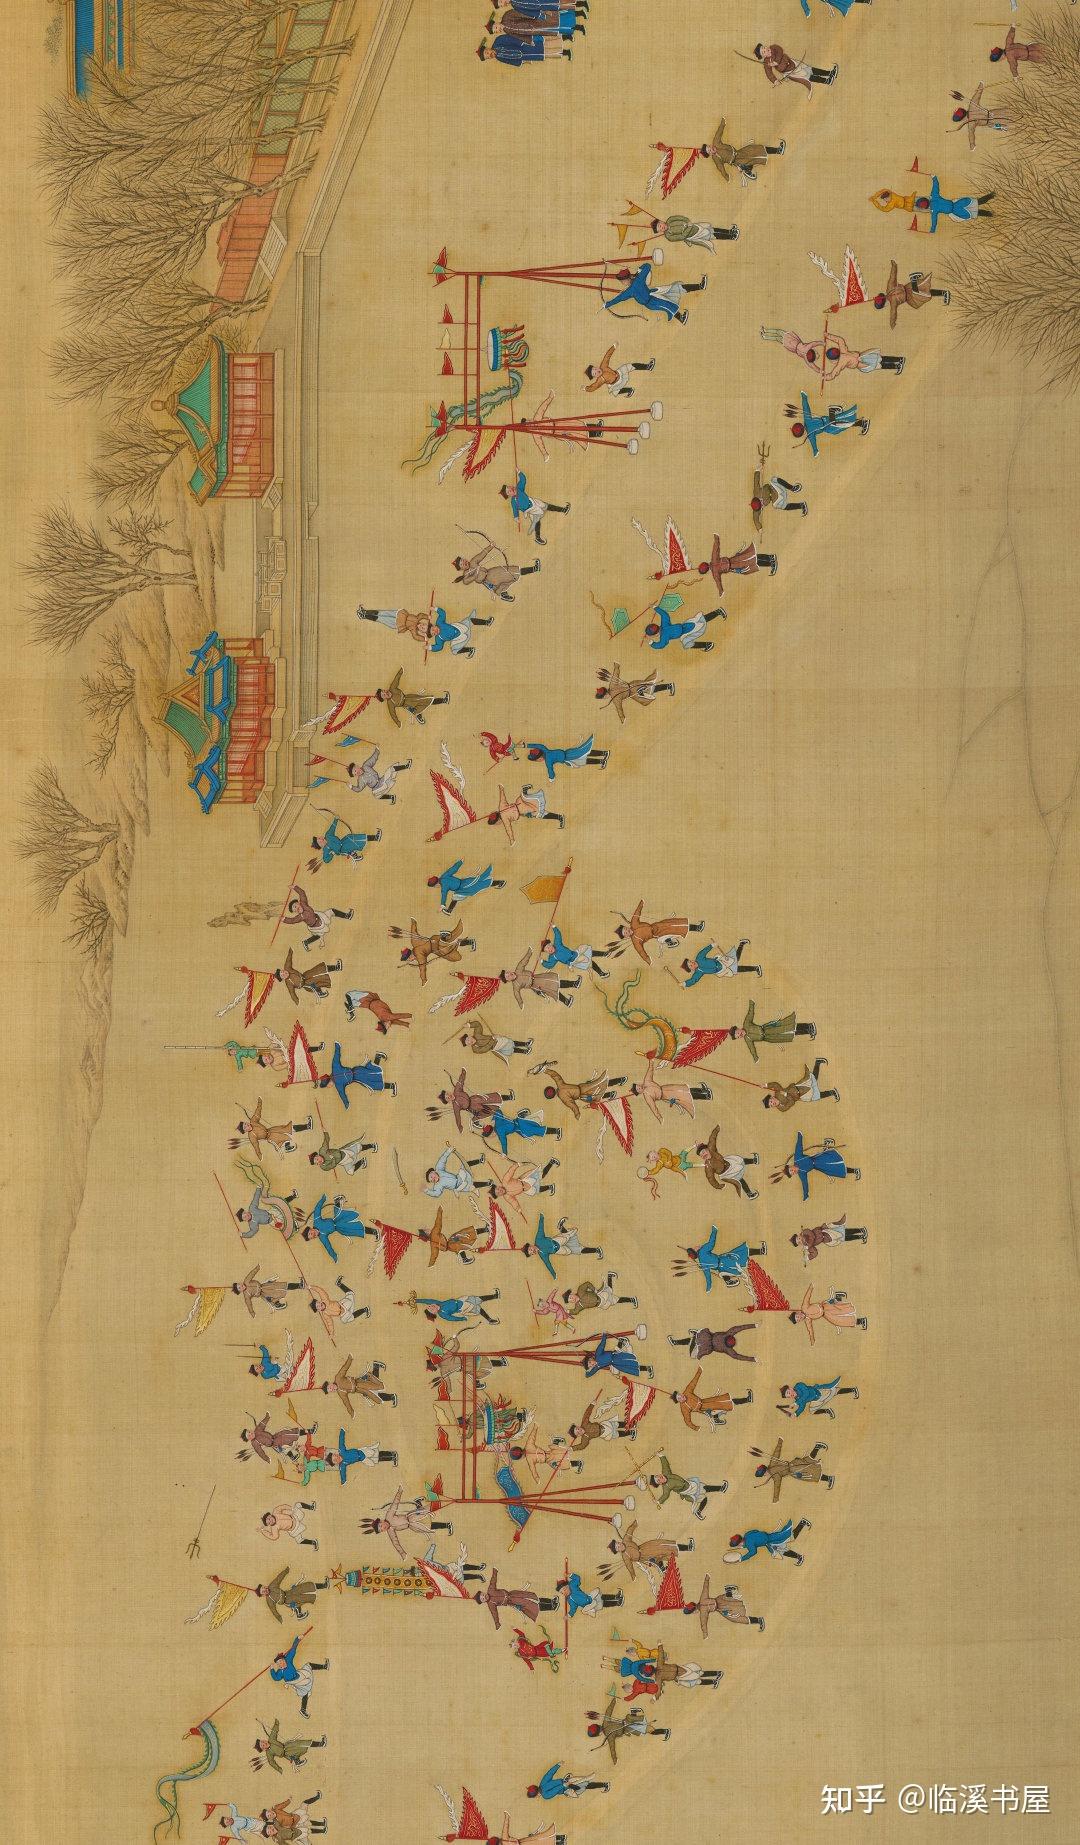 知乎 @临溪书屋